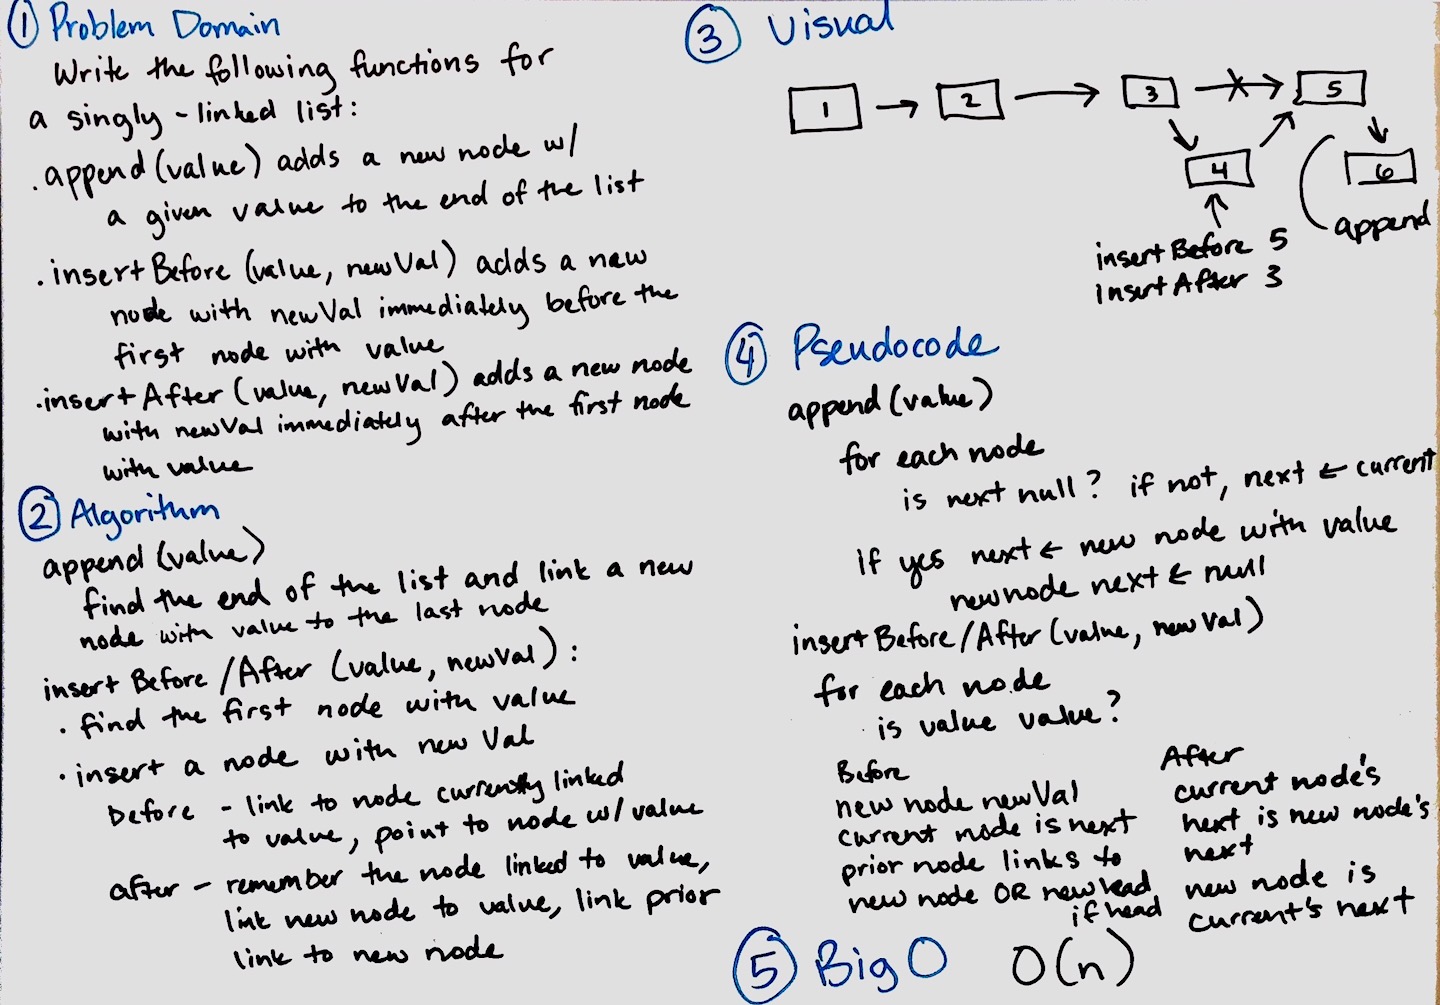 ① Problem Domain
Write the following functions for
a singly-linked list:
. append(value) adds a new node w/
a given value to the end of the list
. insertBefore (value, newVal) adds a new
node with newVal immediately before the
first node with value
. insertAfter (value, newVal) adds a new node
with newVal immediately after the first node
with value
② Algorithm
append (value)
find the end of the list and link a new
node with value to the last node
insert Before /After (value, newVal):
· find the first node with value
· insert a node with new Val
before - link to node currently linked
to value, point to node w/ value
after - remember the node linked to value,
link new node to value, link prior
link to new node
③ Visual
1 → 2 → 3 → 5
4
6
insertBefore 5
insertAfter 3
append
④ Pseudocode
append(value)
for each node
is next null? if not, next ← current
If yes next ← new node with value
newnode next ← null
insertBefore/After (value, newVal)
for each node
is value value?
Before
new node newVal
current node is next
prior node links to
new node OR newhead
if head
After
current node's
next is new node's
next
new node is
current's next
⑤ Big O O(n)